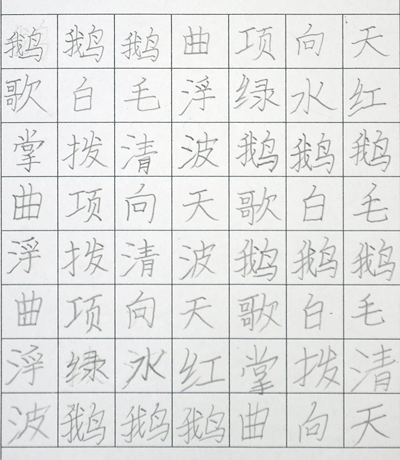 鹅鹅鹅曲项向天
歌白毛浮绿水红
掌拨清波鹅鹅鹅
曲项向天歌白毛
浮拨清波鹅鹅鹅
曲项向天歌白毛
浮绿水红掌拨清
波鹅鹅鹅曲向天